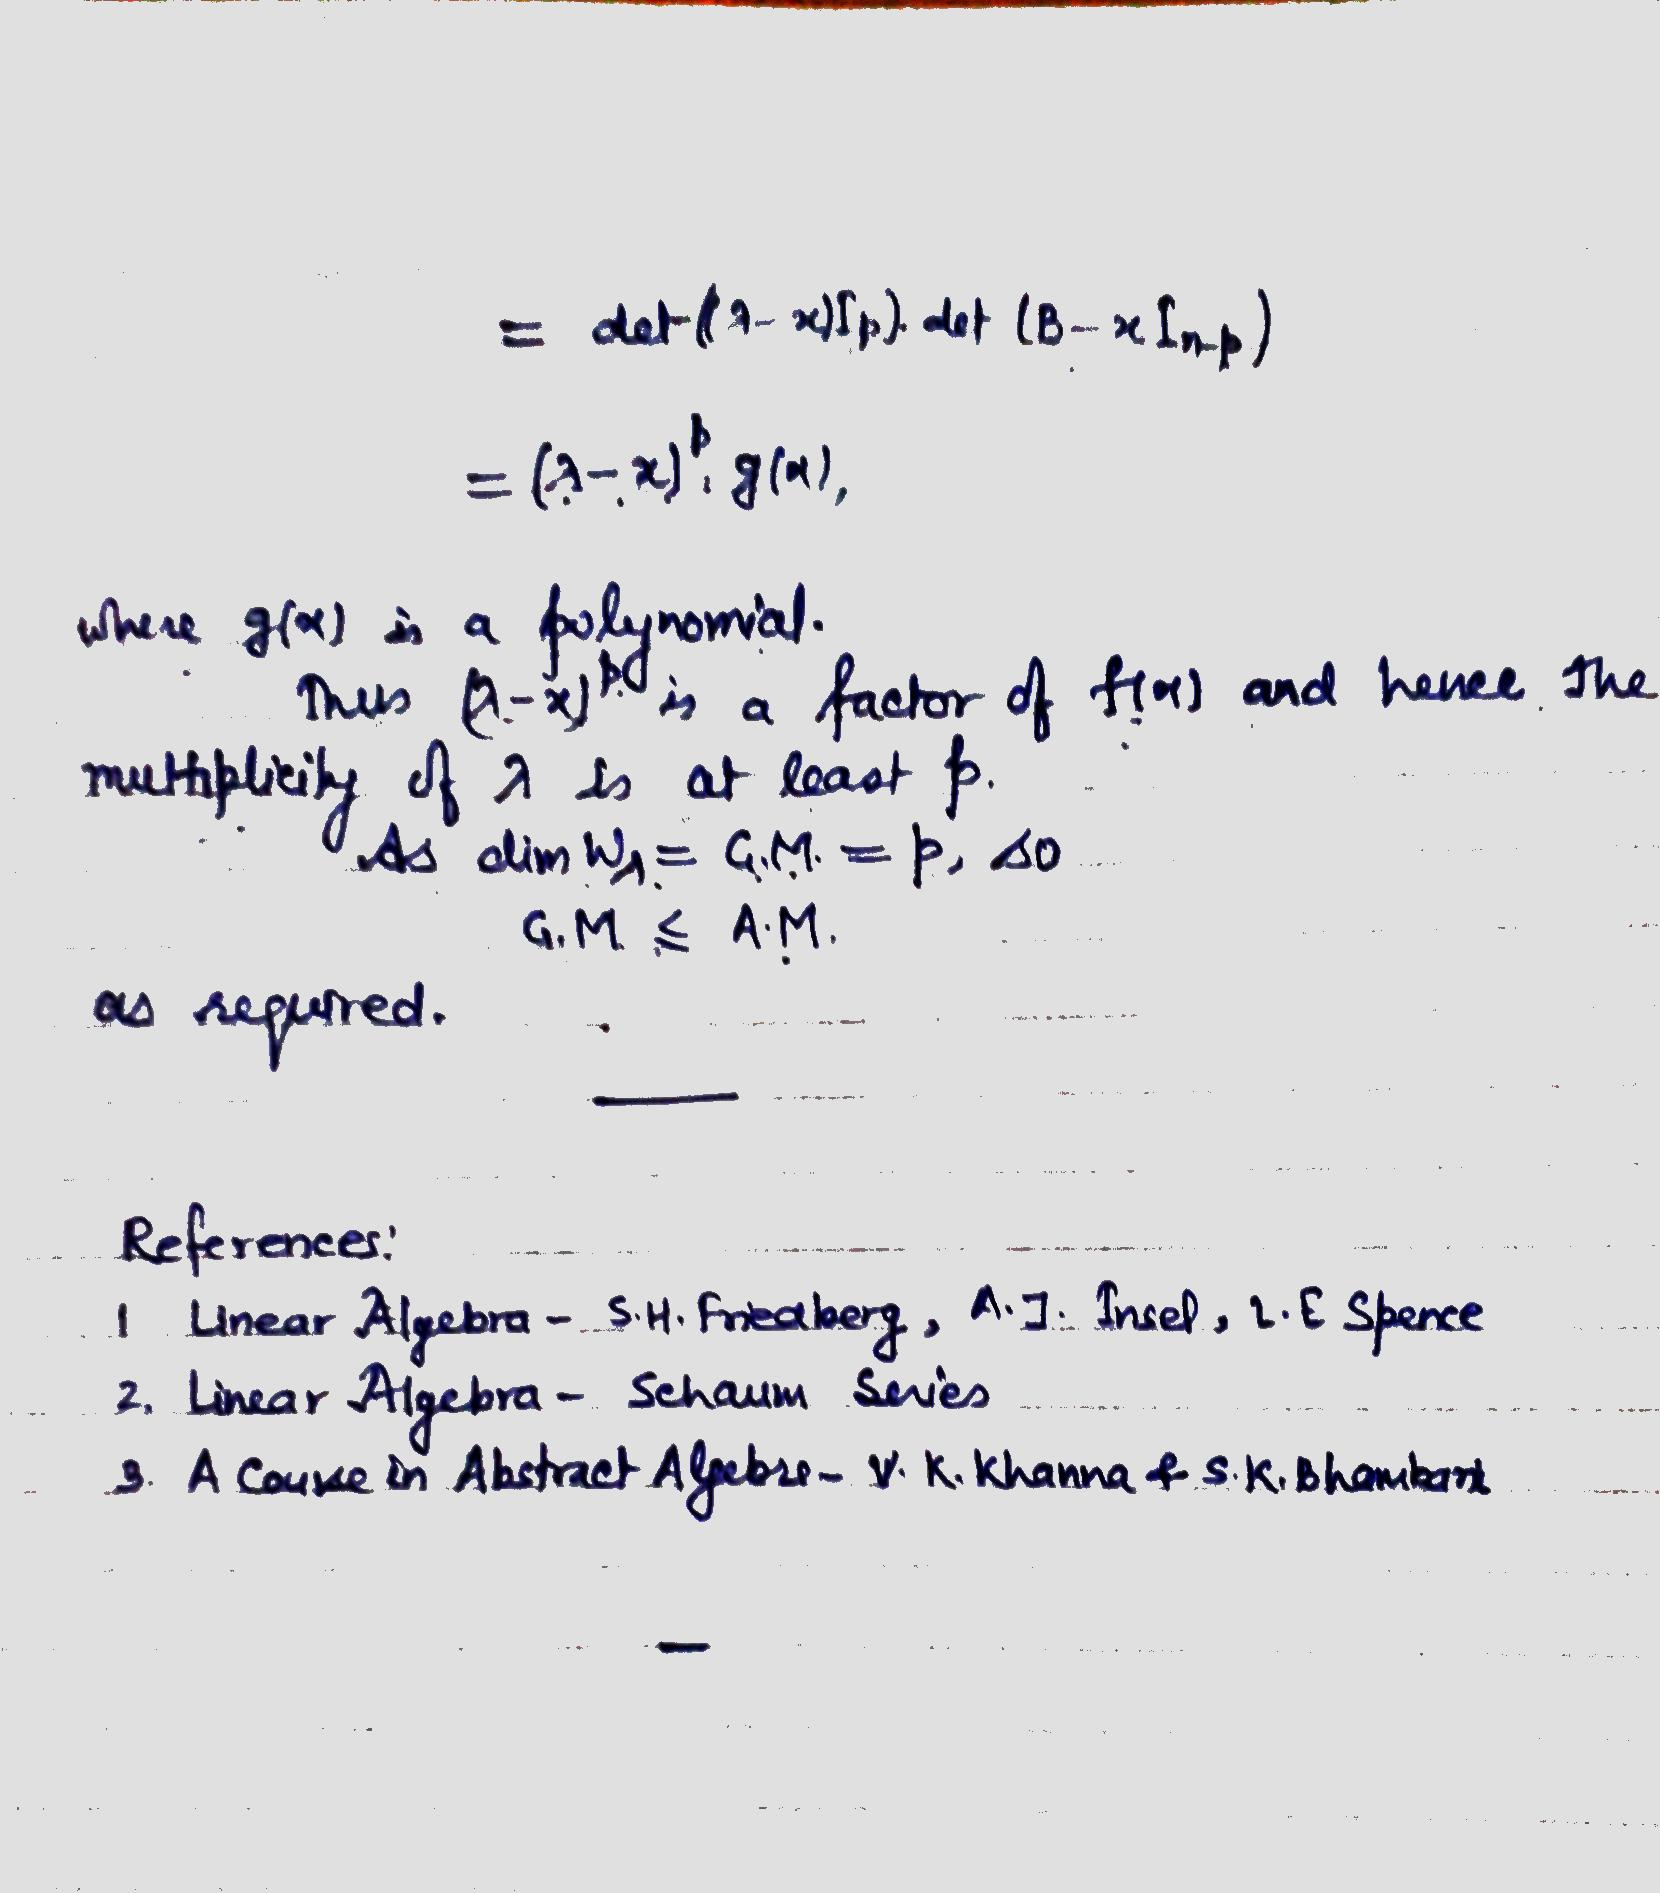 = det((λ-x)Ip). det (B-xIn-p)
= (λ-x)^p. g(x),
where g(x) is a polynomial.
Thus (λ-x)^p is a factor of f(x) and hence the
multiplicity of λ is at least p.
As dim Wλ = G.M. = p, so
G.M. ≤ A.M.
as required.
References:
1 Linear Algebra - S.H. Friedberg, A.J. Insel, L.E Spence
2. Linear Algebra - Schaum Series
3. A Course in Abstract Algebra - V. K. Khanna & S.K. Bhambari